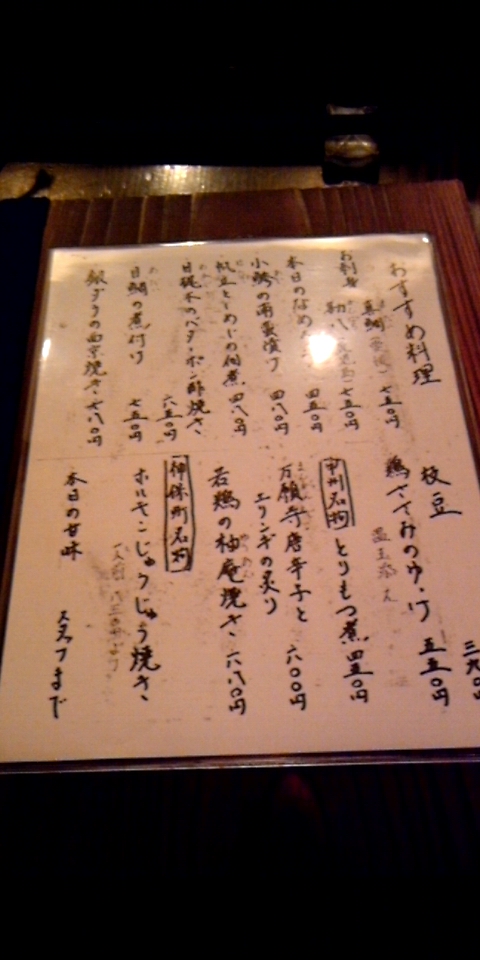 おすすめ料理
お刺身
真鯛 七五〇円
七五〇円
本日のなめ 四五〇円
小鯵の南蛮漬け 四八〇円
帆立としめじの佃煮 四八〇円
目梶木のバターポン酢焼き 六五〇円
目鯛の煮付け 七五〇円
銀ダラの西京焼き 七八〇円
枝豆 三九〇円
鶏ささみのゆっけ 五五〇円
温玉添え
甲州名物 とりもつ煮 四五〇円
万願寺唐辛子と
エリンギの炙り 六〇〇円
若鶏の柚庵焼き 六八〇円
神保町名物
ホルモンじゅうじゅう焼き
一人前
本日の甘味 スタッフまで